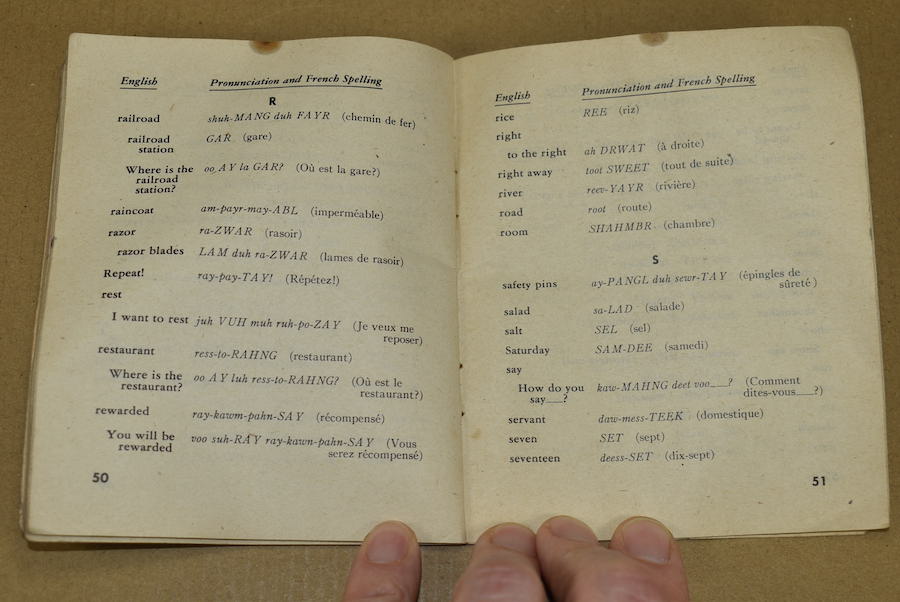 English Pronunciation and French Spelling
R
railroad shuh-MANG duh FAYR (chemin de fer)
railroad GAR (gare)
station
Where is the oo AY la GAR? (Où est la gare?)
railroad
station?
raincoat am-payr-may-ABL (imperméable)
razor ra-ZWAR (rasoir)
razor blades LAM duh ra-ZWAR (lames de rasoir)
Repeat! ray-pay-TAY! (Répétez!)
rest
I want to rest juh VUH muh ruh-po-ZAY (Je veux me
reposer)
restaurant ress-to-RAHNG (restaurant)
Where is the oo AY luh ress-to-RAHNG? (Où est le
restaurant? restaurant?)
rewarded ray-kawm-pahn-SAY (récompensé)
You will be voo suh-RAY ray-kawn-pahn-SAY (Vous
rewarded serez récompensé)
50
English Pronunciation and French Spelling
rice REE (riz)
right
to the right ah DRWAT (à droite)
right away toot SWEET (tout de suite)
river reev-YAYR (rivière)
road root (route)
room SHAHMBR (chambre)
S
safety pins ay-PANGL duh sewr-TAY (épingles de
sûreté)
salad sa-LAD (salade)
salt SEL (sel)
Saturday SAM-DEE (samedi)
say
How do you kaw-MAHNG deet voo___? (Comment
say___? dites-vous___?)
servant daw-mess-TEEK (domestique)
seven SET (sept)
seventeen deess-SET (dix-sept)
51